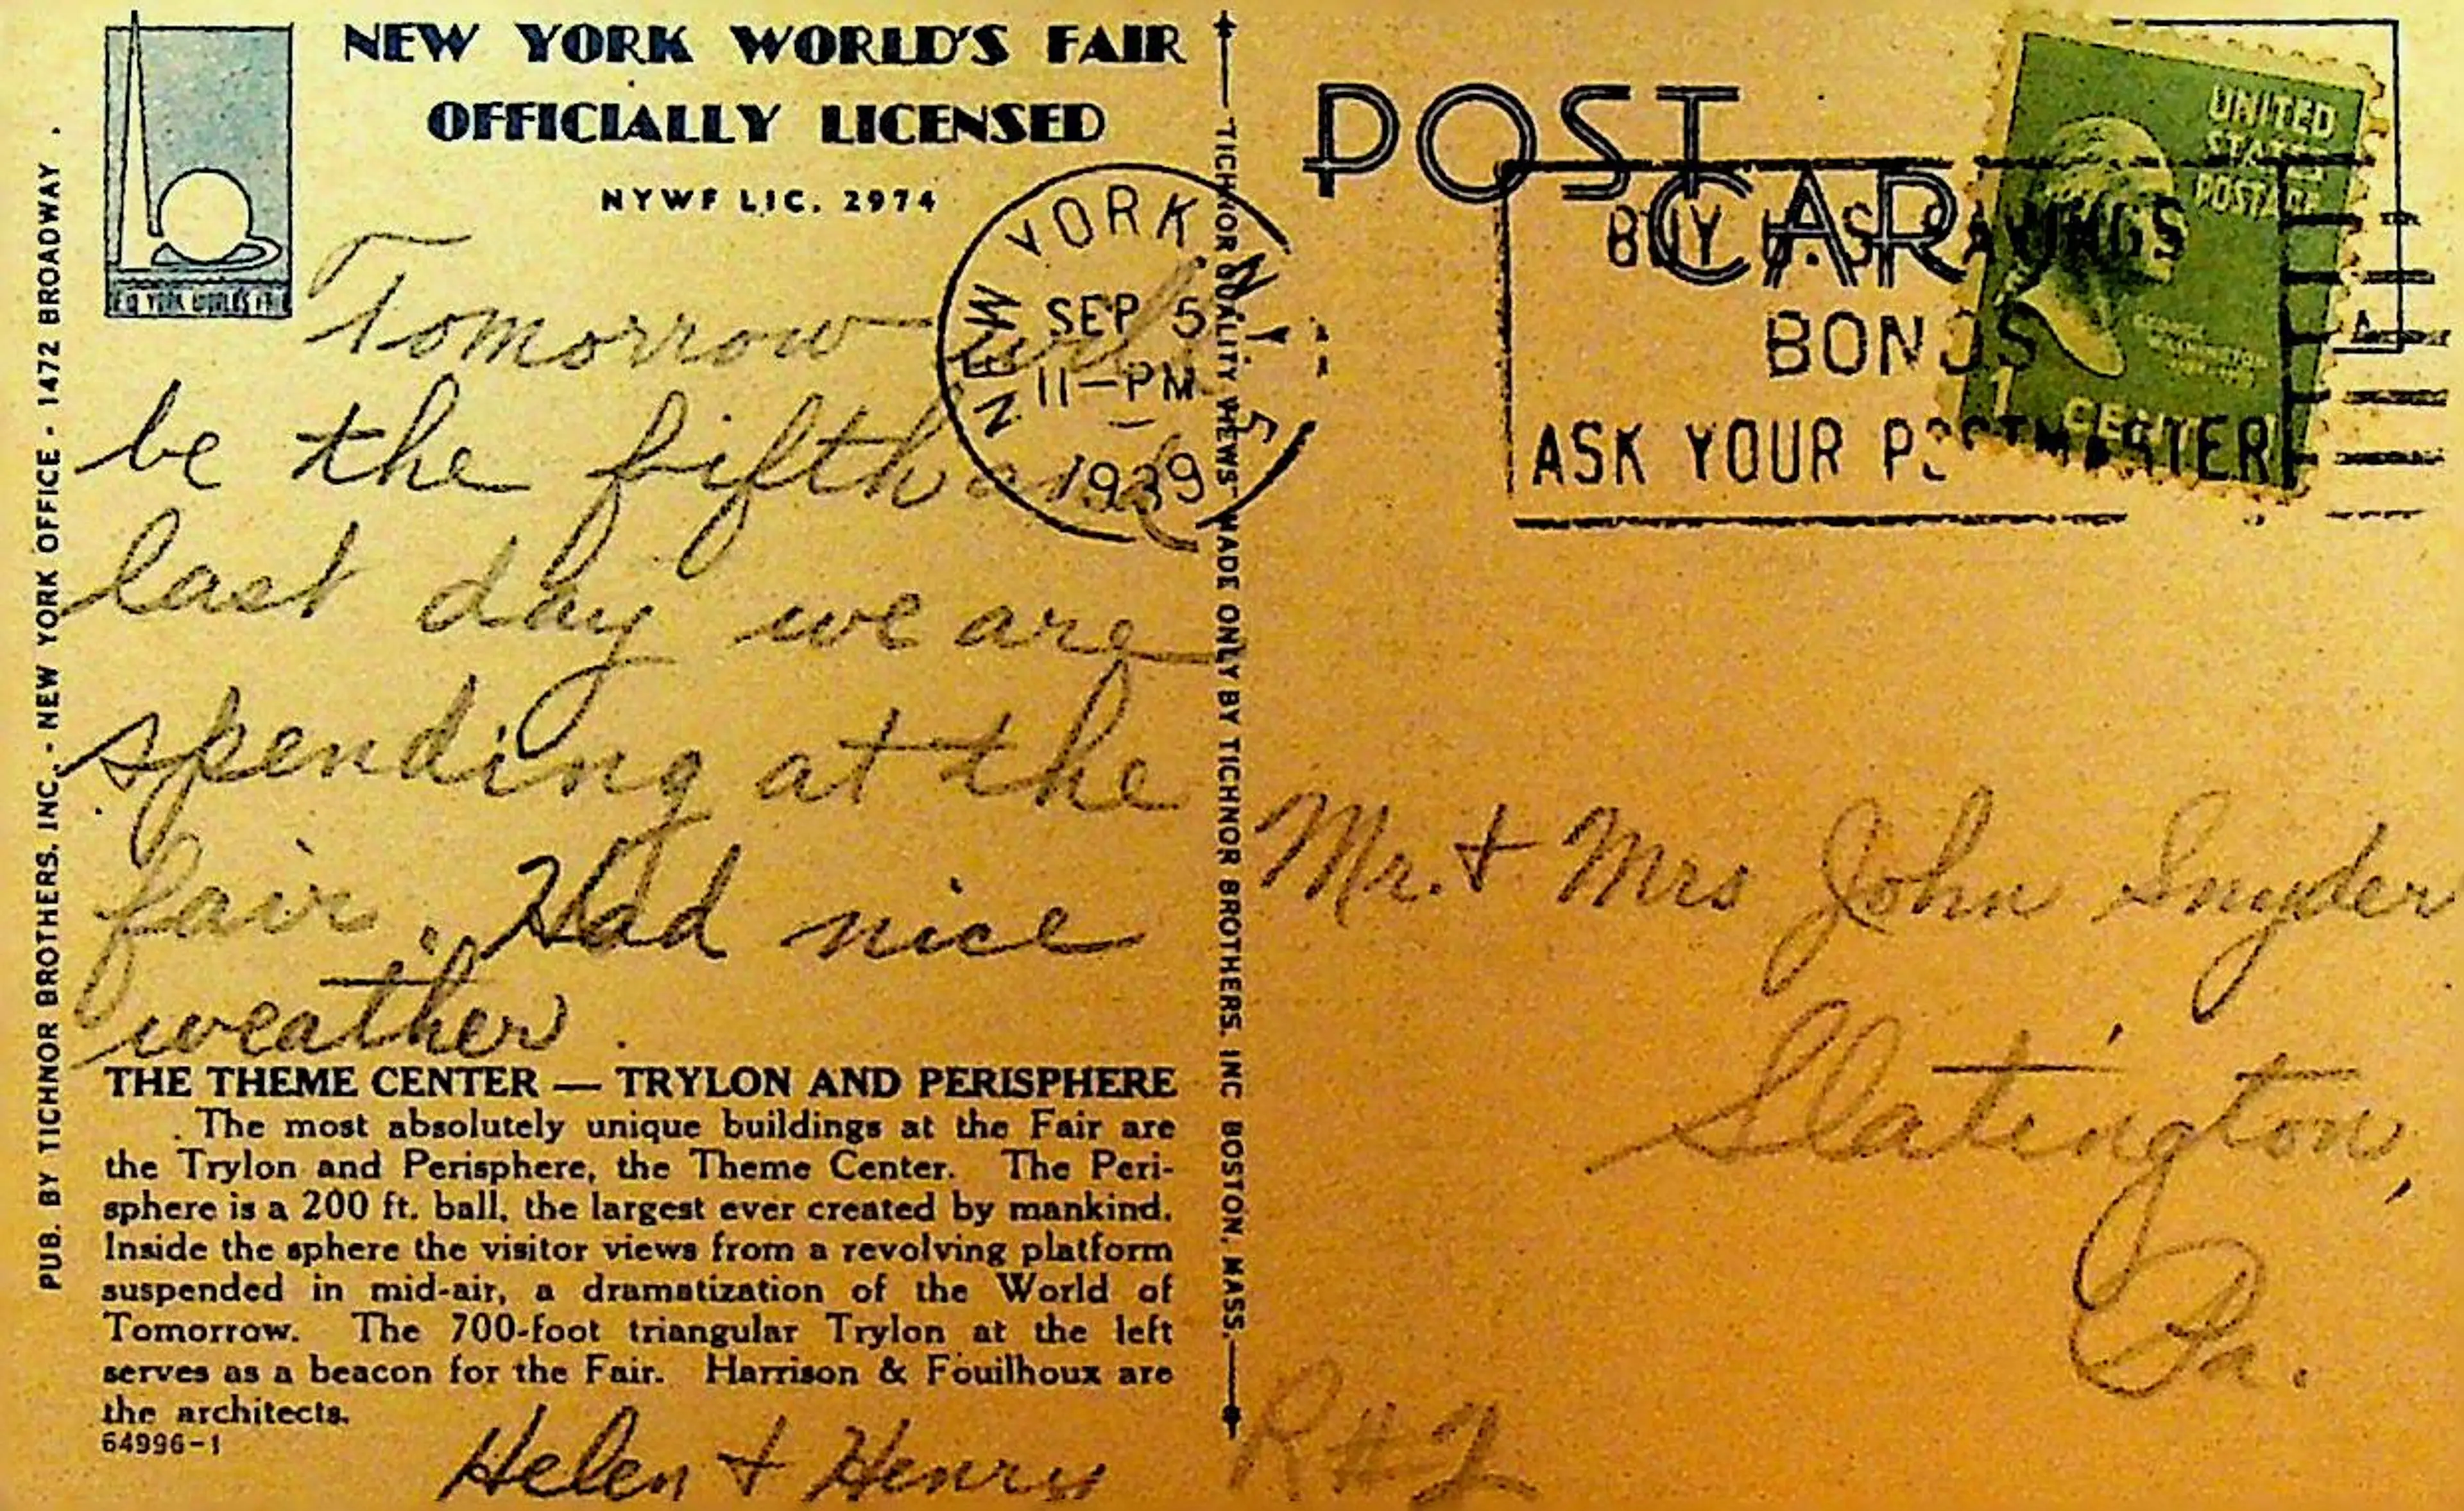 NEW YORK WORLD'S FAIR
OFFICIALLY LICENSED
NYWF LIC. 2974
NEW YORK WORLD'S FAIR
PUB. BY TICHNOR BROTHERS, INC. - NEW YORK OFFICE - 1472 BROADWAY .
Tomorrow will
be the fifth and
last day we are
spending at the
fair. Had nice
weather.
THE THEME CENTER — TRYLON AND PERISPHERE
The most absolutely unique buildings at the Fair are
the Trylon and Perisphere, the Theme Center. The Peri-
sphere is a 200 ft. ball, the largest ever created by mankind.
Inside the sphere the visitor views from a revolving platform
suspended in mid-air, a dramatization of the World of
Tomorrow. The 700-foot triangular Trylon at the left
serves as a beacon for the Fair. Harrison & Fouilhoux are
the architects.
64996-1
Helen + Henry
TICHNOR QUALITY VIEWS MADE ONLY BY TICHNOR BROTHERS, INC BOSTON, MASS.
NEW YORK, N.Y. 5
SEP 5
11-PM
1939
POST
CAR
BUY U.S. SAVINGS
BONDS
ASK YOUR POSTMASTER
UNITED
STATES
POSTAGE
GEORGE
WASHINGTON
1 CENT 1
Mr. + Mrs John Snyder
Slatington,
Pa.
R#2